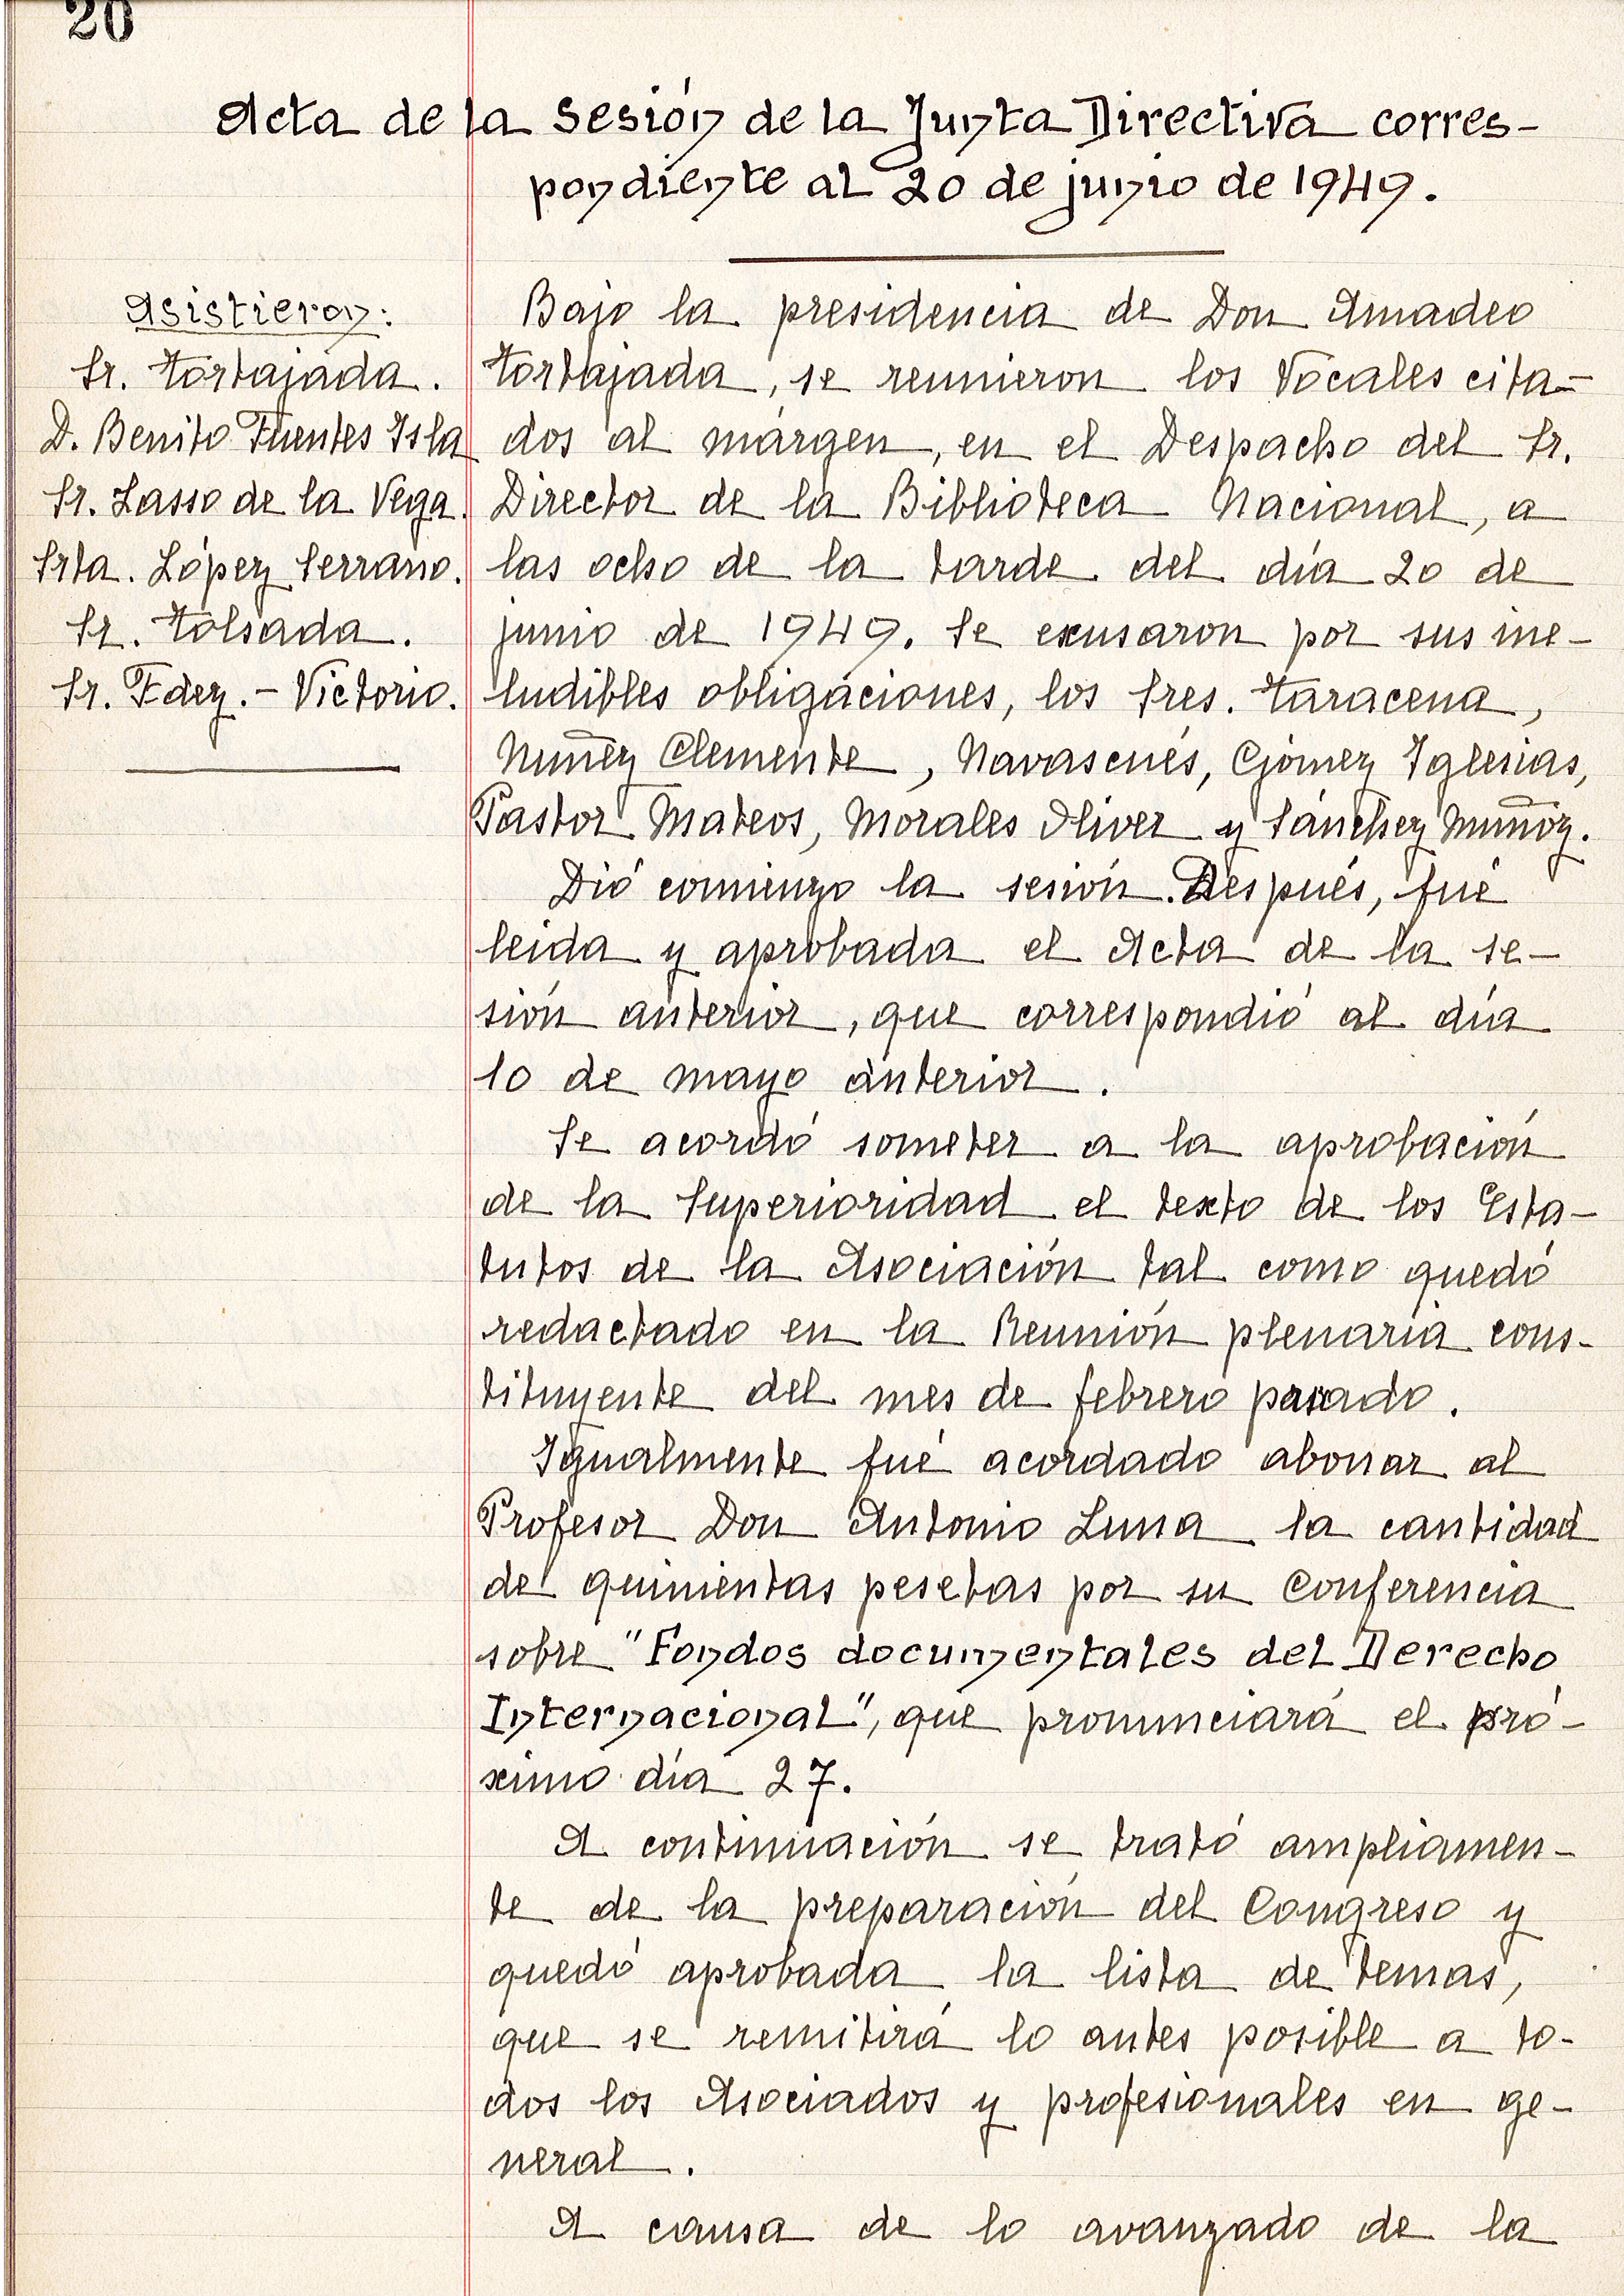 20
Acta de la sesión de la Junta Directiva corres-
pondiente al 20 de junio de 1949.
Asistieron:
Sr. Tortajada.
D. Benito Fuentes Isla
Sr. Lasso de la Vega.
Srta. López Serrano.
Sr. Tolsada.
Sr. Fdez.- Victorio.
Bajo la presidencia de Don Amadeo
Tortajada, se reunieron los Vocales cita-
dos al márgen, en el Despacho del Sr.
Director de la Biblioteca Nacional, a
las ocho de la tarde del día 20 de
junio de 1949. Se exusaron por sus ine-
ludibles obligaciones, los Sres. Taracena,
Nuñez Clemente, Navascués, Gómez Iglesias,
Pastor Mateos, Morales Oliver y Sánchez Muñoz.
Dió comienzo la sesión. Después, fué
leida y aprobada el Acta de la se-
sión anterior, que correspondió al día
10 de mayo anterior.
Se acordó someter a la aprobación
de la Superioridad el texto de los Esta-
tutos de la Asociación tal como quedó
redactado en la Reunión plenaria cons-
tituyente del mes de febrero pasado.
Igualmente fué acordado abonar al
Profesor Don Antonio Luna la cantidad
de quinientas pesetas por su Conferencia
sobre "Fondos documentales del Derecho
Internacional", que pronunciará el pró-
ximo día 27.
A continuación se trató ampliamen-
te de la preparación del Congreso y
quedó aprobada la lista de temas,
que se remitirá lo antes posible a to-
dos los Asociados y profesionales en ge-
neral.
A causa de lo avanzado de la